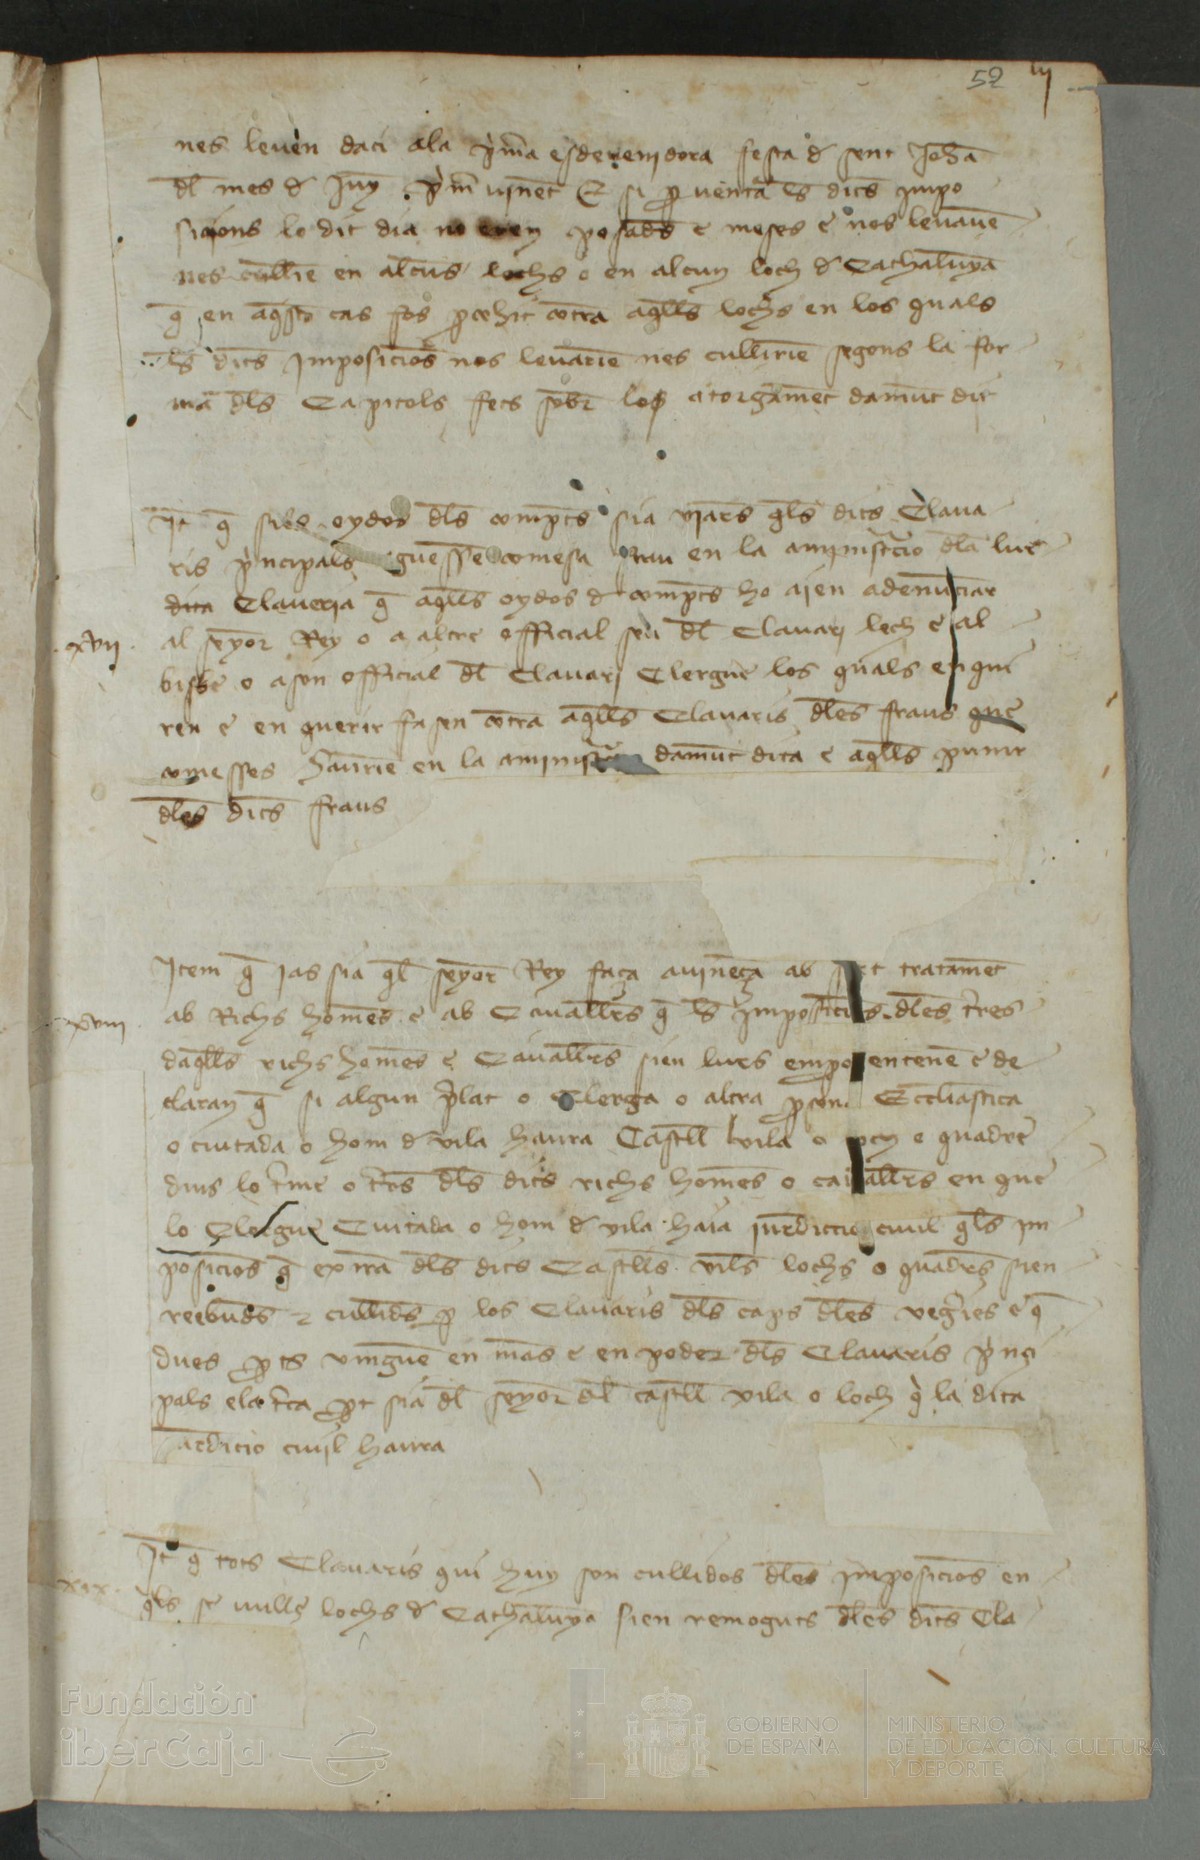 52 iij
nes leven daci ala p̃ma esdevenidora festa d sent Joh̃a
dl̃ mes d Juñy p̃m vinẽt E si p̱ventã ls̃ dits Impo
sicions lo dit dia no eren posads̃ e meses e nos levavẽ
nes cullirẽ en alcũs lochs o en alcun loch d Cathaluỹa
q̃ en aq̃st cas fos p̱cehit cõtra aq̃lls lochs en los quals
ls̃ dits Imposicions̃ nos levariẽ nes culliriẽ segons la for
ma dl̃s Capitols fets sob̃r los atorgamẽt damũt dit
It̃ q̃ sils oydos dl̃s comp̃ts sia viãrs q̃ls dits Clava
ris p̃ncipals haguessẽ comesa frau en la aministracio dl̃a lur
dita Claveria q̃ aq̃lls oydos d comp̃ts ho ajen adenũciar
xvii al seỹor Rey o a altre official seu dl̃ Clavari lech e al
bisbe o ason official dl̃ Clavari Clergue los quals enqui
ren e en querir fasen cõtra aq̃lls Clavaris dl̃es fraus que
comesses hauriẽ en la aministracio damũt dita e aq̃lls punir
dl̃es dits̃ fraus
Item q̃ jas sia q̃l seỹor Rey faça avinẽça ab tratamẽt
xviii ab Richs homẽs e ab Cavallẽrs q̃ ls̃ Imposicios dl̃es t̃res
daq̃lls richs homẽs e Cavallẽrs sien lurs empo entenẽ e de
claran q̃ si algun p̃lat o Clerga o altra p̱sona Ecc̃liastica
o ciutada o hom d vila haura Castell̃ vila o loch o quadre
dins lo t̃me o t̃res dl̃s dits richs homẽs o cavallẽrs en que
lo Clergue Ciutada o hom d vila haia jur̃diccio civil q̃ls im
posicios q̃ exirã dl̃s dits Castell̃s viles lochs o quadrẽs sien
reebuds̃ e cullids̃ p̱ los Clavaris dl̃s caps dl̃es vegries e q̃
dues p̱ts vinguẽ en mãs e en poder dl̃s Clavaris p̃nci
pals ela t̃ca p̱t sia dl̃ seỹor dl̃ castell̃ vila o loch q̃ la dita
jur̃dicio civil haura
It̃ q̃ tots Clavaris qui huy son cullidos dl̃es Imposicions en
xix q̃ls se vulle lochs d Cathaluỹa sien remoguts dl̃es dits̃ Cla
Fundación
iberCaja
GOBIERNO
DE ESPAÑA
MINISTERIO
DE EDUCACIÓN, CULTURA
Y DEPORTE